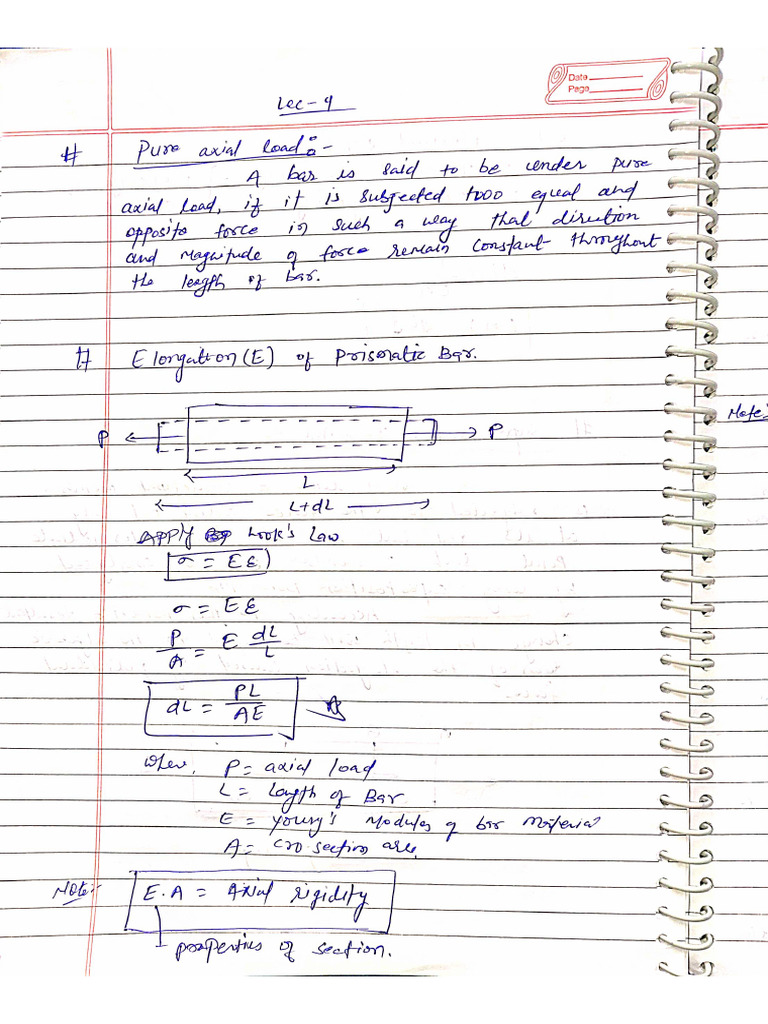 Date
Page
Lec-4
# Pure axial load:-
A bar is said to be under pure
axial load, if it is subjected to equal and
opposite force in such a way that direction
and magnitude of force remain constant throughout
the length of bar.
# Elongation (E) of Prismatic Bar.
Note:
P P
L
L+dL
Apply Hook's Law
σ = Eε
σ = Eε
P/A = E dL/L
dL = PL/AE
where, P = axial load
L = Length of Bar.
E = Young's Modules of bar Material
A = Cro-section area,
Note:- E.A = Axial rigidity
properties of section.